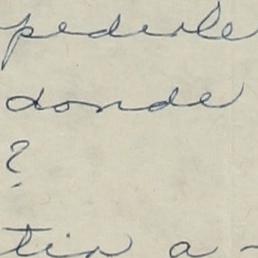 pedirle
donde
?
tir a-